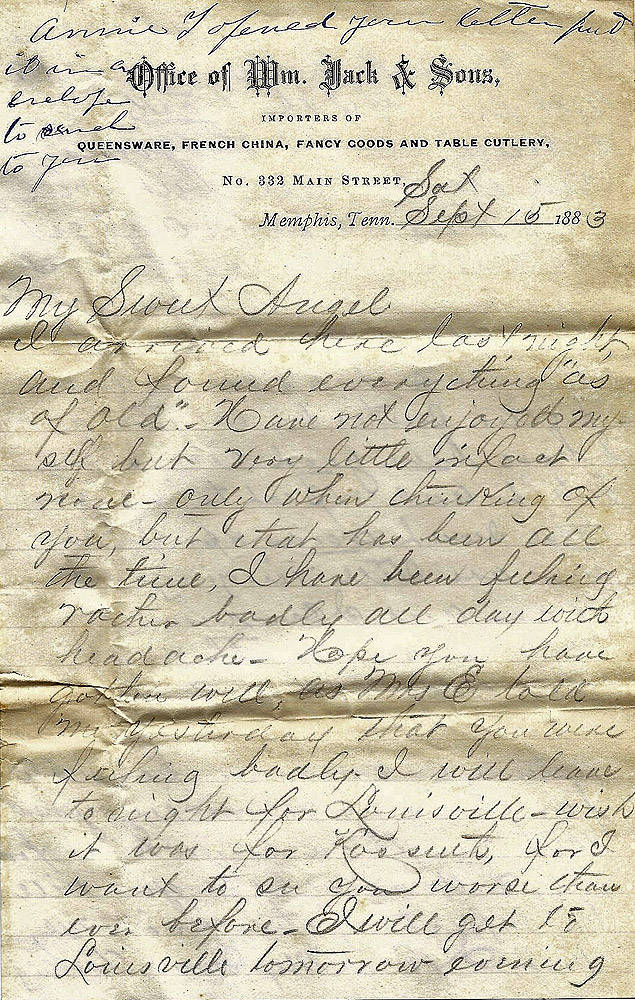 Annie I opened your letter put
it in a
envelope
to send
to you
Office of Wm. Jack & Sons,
IMPORTERS OF
QUEENSWARE, FRENCH CHINA, FANCY GOODS AND TABLE CUTLERY,
No. 332 MAIN STREET,
Sat
Memphis, Tenn. Sept 15 1883
My Sweet Angel
I arrived here last night
and found everything "as
of old" - Have not enjoyed my-
self but very little infact
none - only when thinking of
you, but that has been all
the time, I have been feeling
rather badly all day with
headache - Hope you have
gotten well, as Mrs E told
me yesterday that you were
feeling badly. I will leave
tonight for Louisville - wish
it was for Kossuth, for I
want to see you worse than
ever before - I will get to
Louisville tomorrow evening